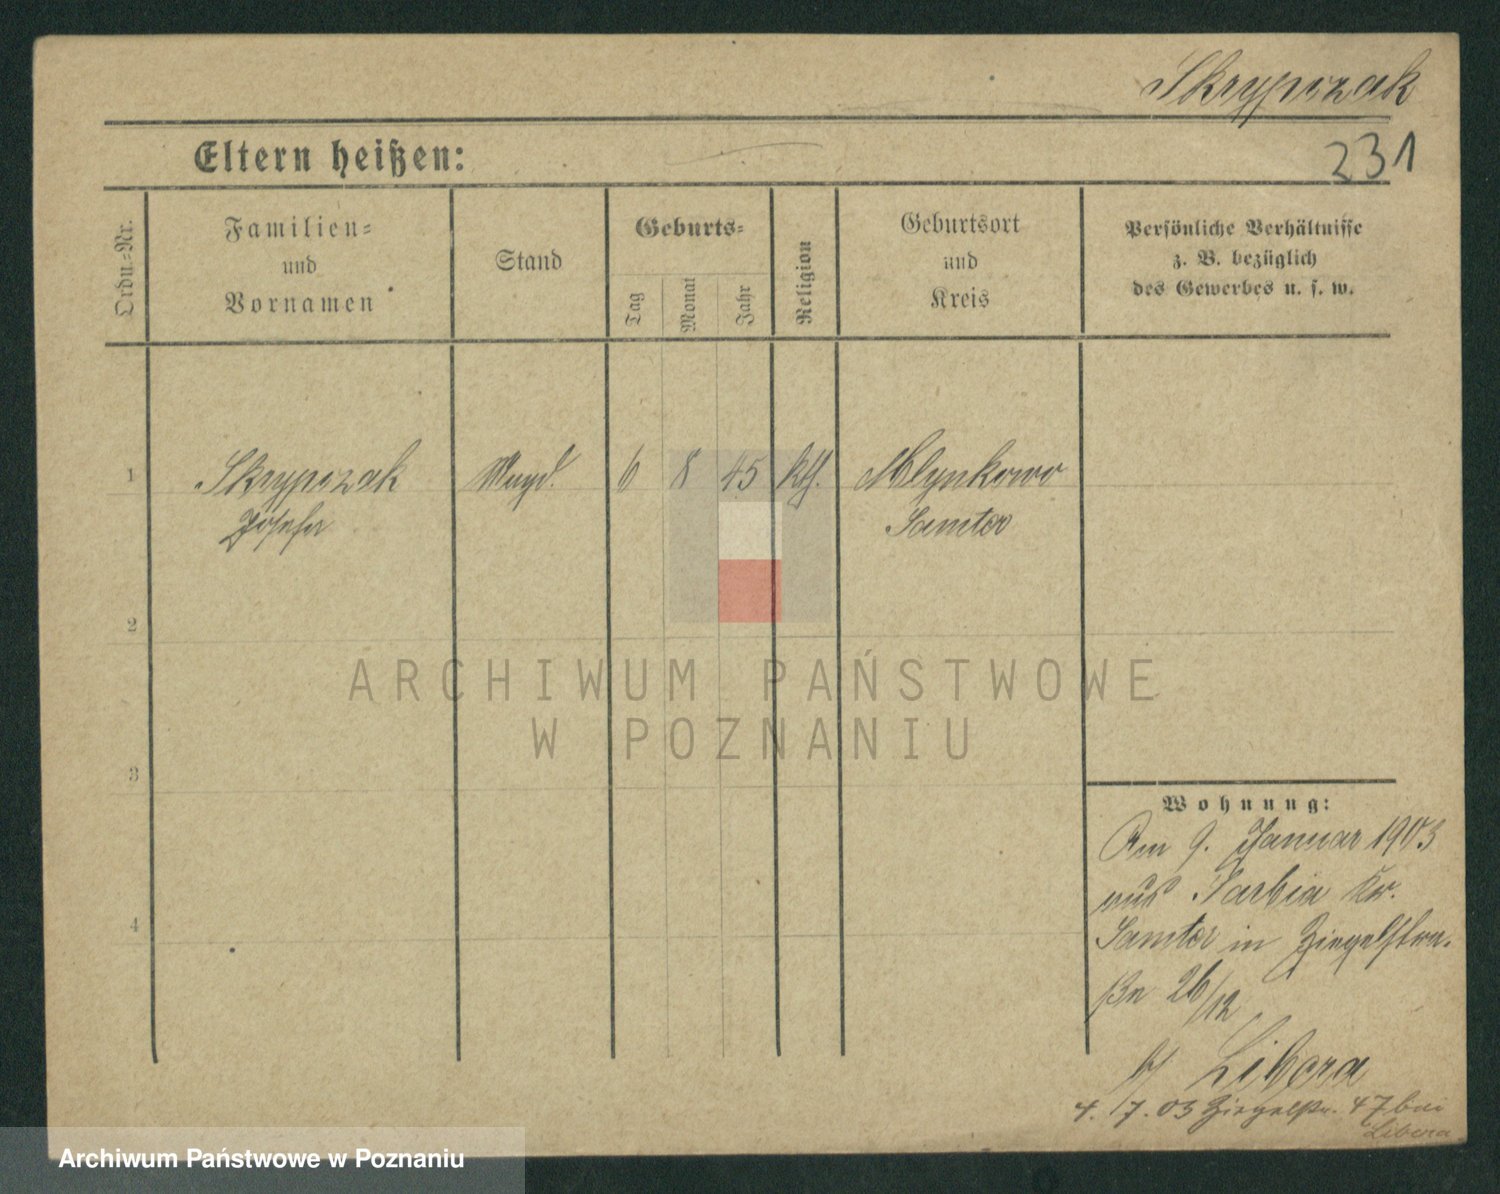 Skrypczak
231
Eltern heißen:
Ordn.-Nr.
Familien-
und
Vornamen
Stand
Geburts-
Tag
Monat
Jahr
Religion
Geburtsort
und
Kreis
Persönliche Verhältnisse
z. B. bezüglich
des Gewerbes u. s. w.
1 Skrypczak 6 8 45 kth. Mlynkowo
Josefa Samter
2
ARCHIWUM PAŃSTWOWE
W POZNANIU
3
Wohnung:
Am 9. Januar 1903
aus Sarbia Kr.
4
Samter in Ziegelstra-
ße 26/12
b/ Libera
4. 7. 03 Ziegelstr. 47 bei
Libera
Archiwum Państwowe w Poznaniu